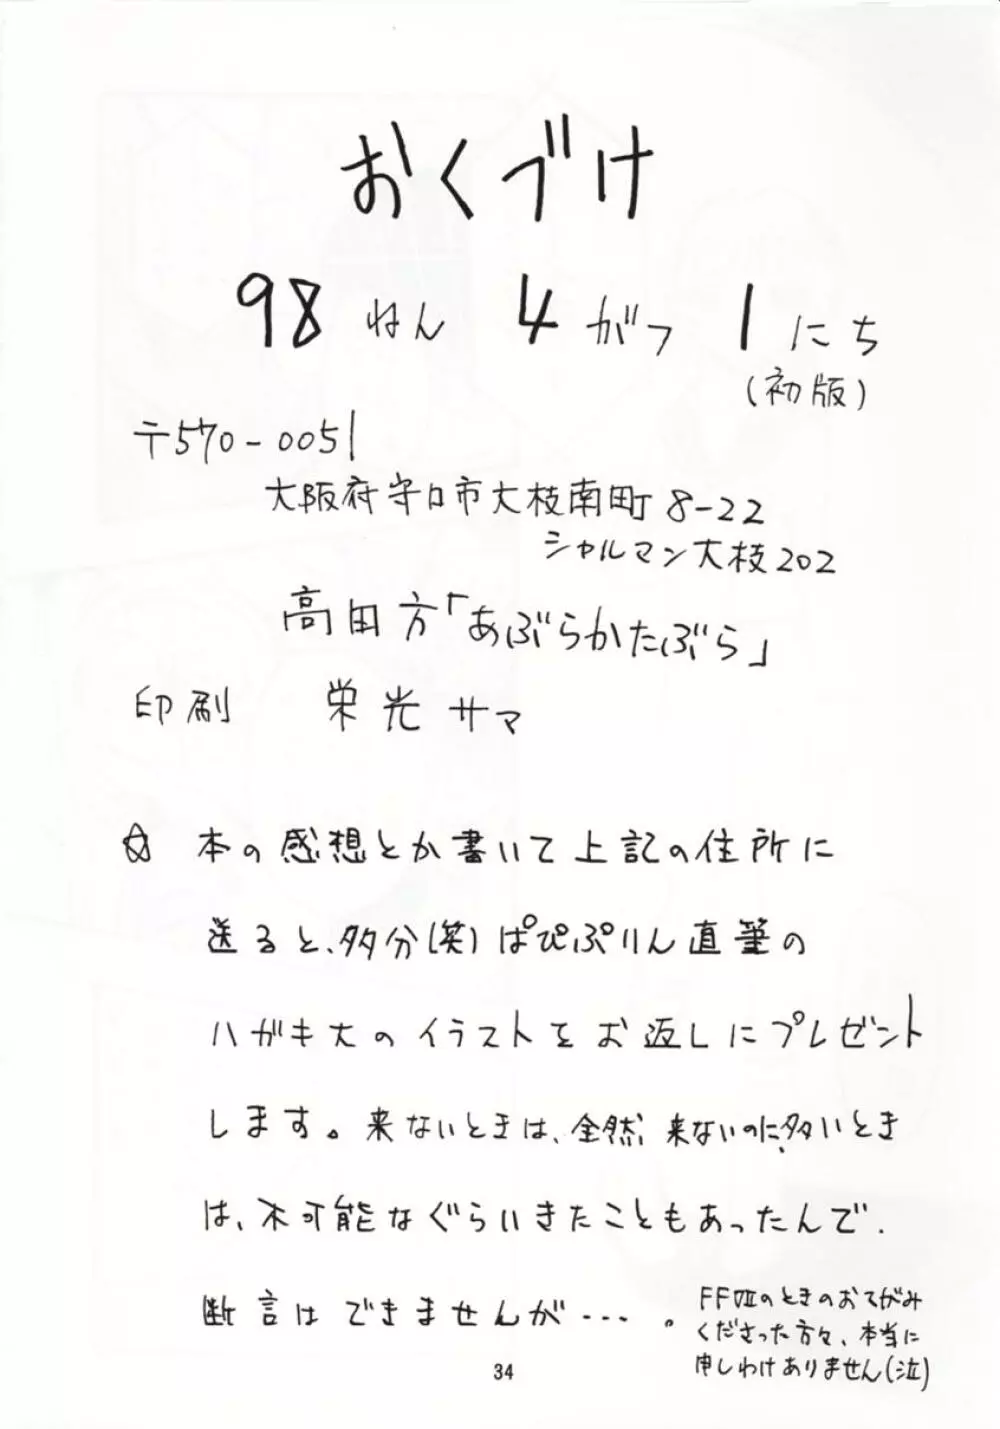 おくづけ
98ねん 4がつ 1にち
(初版)
〒570-0051
大阪府守口市大枝南町8-22
シャルマン大枝202
高田方「あぶらかたぶら」
印刷 栄光サマ
☆ 本の感想とか書いて上記の住所に
送ると、多分(笑)ぱぴぷりん直筆の
ハガキ大のイラストをお返しにプレゼント
します。来ないときは、全然、来ないのに、多いとき
は、不可能なぐらいきたこともあったんで、
断言はできませんが・・・・。
FFⅦのときのおてがみ
くださった方々、本当に
申しわけありません(泣)
34